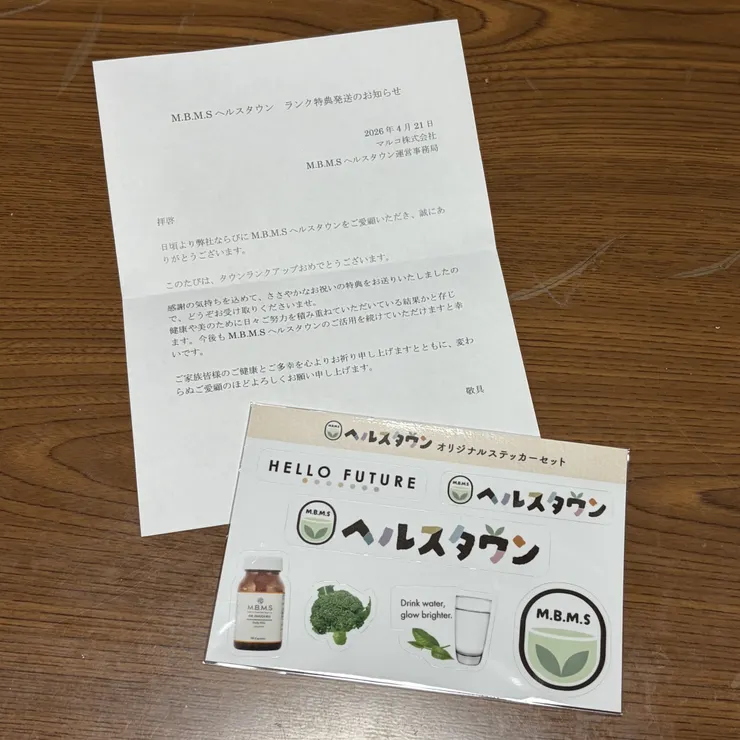 M.B.M.Sヘルスタウン　ランク特典発送のお知らせ
2026年4月21日
マルコ株式会社
M.B.M.Sヘルスタウン運営事務局
拝啓
日頃より弊社ならびにM.B.M.Sヘルスタウンをご愛顧いただき、誠にあ
りがとうございます。
このたびは、タウンランクアップおめでとうございます。
感謝の気持ちを込めて、ささやかなお祝いの特典をお送りいたしましたの
で、どうぞお受け取りくださいませ。
健康や美のために日々ご努力を積み重ねていただいている結果かと存じ
ます。今後もM.B.M.Sヘルスタウンのご活用を続けていただけますと幸
いです。
ご家族皆様のご健康とご多幸を心よりお祈り申し上げますとともに、変わ
らぬご愛顧のほどよろしくお願い申し上げます。
敬具
M.B.M.S ヘルスタウン オリジナルステッカーセット
HELLO FUTURE
M.B.M.S ヘルスタウン
M.B.M.S ヘルスタウン
M.B.M.S
Drink water,
glow brighter.
M.B.M.S